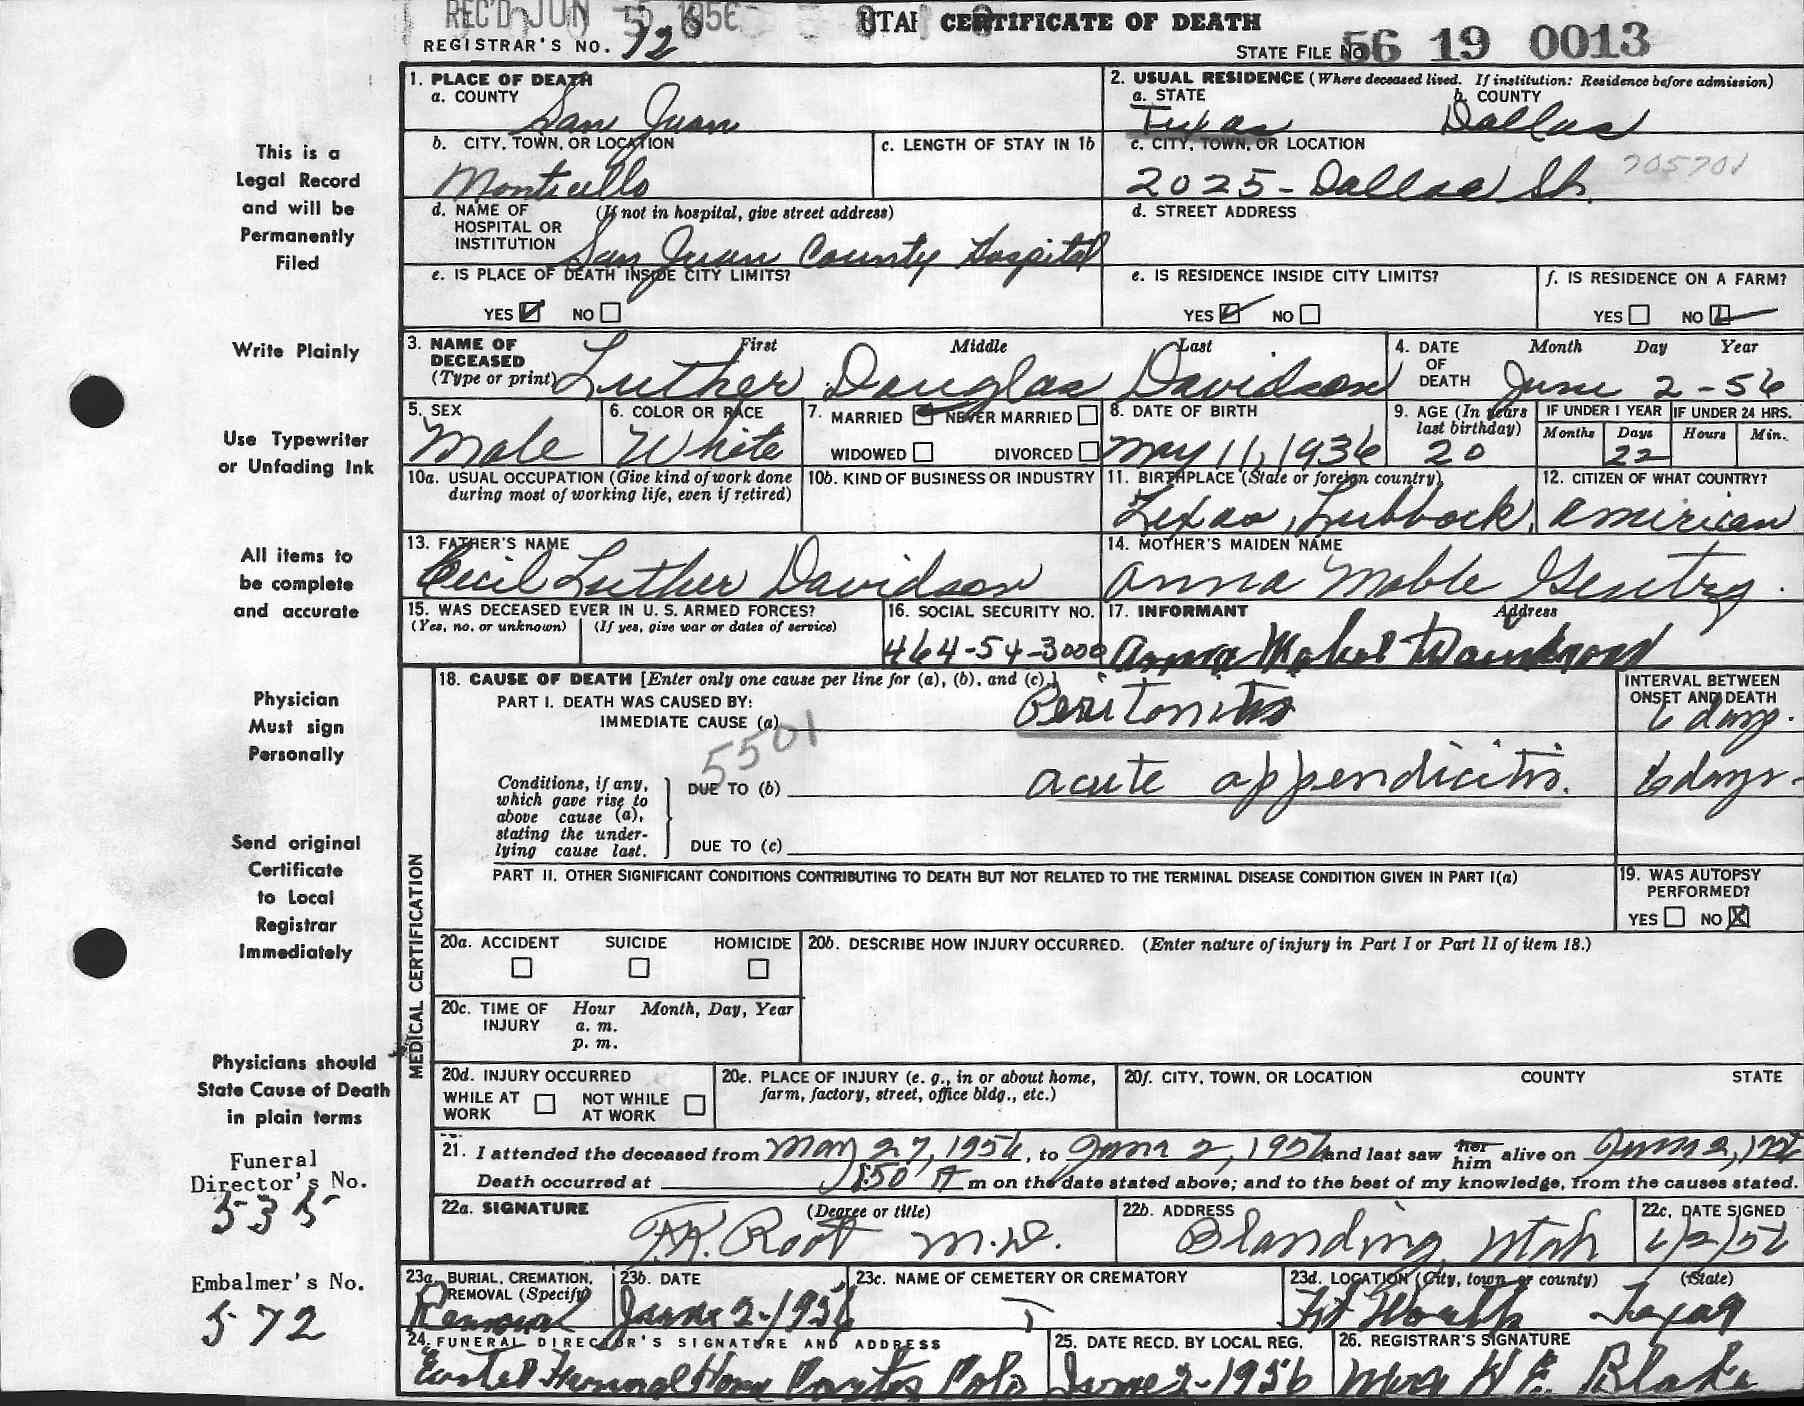 REC'D JUN 5 1956
UTAH CERTIFICATE OF DEATH
REGISTRAR'S NO. 12
STATE FILE NO. 56 19 0013
This is a
Legal Record
and will be
Permanently
Filed
Write Plainly
Use Typewriter
or Unfading Ink
All items to
be complete
and accurate
Physician
Must sign
Personally
Send original
Certificate
to Local
Registrar
Immediately
Physicians should
State Cause of Death
in plain terms
Funeral
Director's No.
535
Embalmer's No.
572
1. PLACE OF DEATH
a. COUNTY
San Juan
2. USUAL RESIDENCE (Where deceased lived. If institution: Residence before admission)
a. STATE b. COUNTY
Texas Dallas
b. CITY, TOWN, OR LOCATION
Monticello
c. LENGTH OF STAY IN 1b
c. CITY, TOWN, OR LOCATION
2025 - Dallas St. 705701
d. NAME OF (If not in hospital, give street address)
HOSPITAL OR
INSTITUTION San Juan County Hospital
d. STREET ADDRESS
e. IS PLACE OF DEATH INSIDE CITY LIMITS?
YES NO
e. IS RESIDENCE INSIDE CITY LIMITS?
YES NO
f. IS RESIDENCE ON A FARM?
YES NO
3. NAME OF DECEASED (Type or print) First Middle Last
Luther Douglas Davidson
4. DATE OF DEATH Month Day Year
June 2 - 56
5. SEX
Male
6. COLOR OR RACE
White
7. MARRIED NEVER MARRIED
WIDOWED DIVORCED
8. DATE OF BIRTH
May 11, 1936
9. AGE (In years last birthday)
20
IF UNDER 1 YEAR IF UNDER 24 HRS.
Months Days Hours Min.
22
10a. USUAL OCCUPATION (Give kind of work done during most of working life, even if retired)
10b. KIND OF BUSINESS OR INDUSTRY
11. BIRTHPLACE (State or foreign country)
Texas, Lubbock
12. CITIZEN OF WHAT COUNTRY?
American
13. FATHER'S NAME
Cecil Luther Davidson
14. MOTHER'S MAIDEN NAME
Anna Mable Gentry.
15. WAS DECEASED EVER IN U.S. ARMED FORCES?
(Yes, no, or unknown) (If yes, give war or dates of service)
16. SOCIAL SECURITY NO.
464-54-3000
17. INFORMANT Address
Anna
MEDICAL CERTIFICATION
18. CAUSE OF DEATH [Enter only one cause per line for (a), (b), and (c).]
PART I. DEATH WAS CAUSED BY:
IMMEDIATE CAUSE (a) Peritonitis
INTERVAL BETWEEN
ONSET AND DEATH
6 days.
5501
Conditions, if any,
which gave rise to
above cause (a),
stating the under-
lying cause last.
DUE TO (b) acute appendicitis. 6 days.
DUE TO (c)
PART II. OTHER SIGNIFICANT CONDITIONS CONTRIBUTING TO DEATH BUT NOT RELATED TO THE TERMINAL DISEASE CONDITION GIVEN IN PART I(a)
19. WAS AUTOPSY
PERFORMED?
YES NO X
20a. ACCIDENT SUICIDE HOMICIDE
20b. DESCRIBE HOW INJURY OCCURRED. (Enter nature of injury in Part I or Part II of item 18.)
20c. TIME OF INJURY Hour Month, Day, Year
a. m.
p. m.
20d. INJURY OCCURRED
WHILE AT WORK NOT WHILE AT WORK
20e. PLACE OF INJURY (e. g., in or about home, farm, factory, street, office bldg., etc.)
20f. CITY, TOWN, OR LOCATION COUNTY STATE
21. I attended the deceased from May 27, 1956, to June 2, 1956 and last saw her him alive on June 2, 1956
Death occurred at 1:50 A m on the date stated above; and to the best of my knowledge, from the causes stated.
22a. SIGNATURE (Degree or title)
F.K. Root M.D.
22b. ADDRESS
Blanding, Utah
22c. DATE SIGNED
6/2/56
23a. BURIAL, CREMATION, REMOVAL (Specify)
Removal
23b. DATE
June 2-1956
23c. NAME OF CEMETERY OR CREMATORY
23d. LOCATION (City, town or county) (State)
Ft Worth Texas
24. FUNERAL DIRECTOR'S SIGNATURE AND ADDRESS
Funeral Home Cortez Colo
25. DATE RECD. BY LOCAL REG.
June 2-1956
26. REGISTRAR'S SIGNATURE
Blake